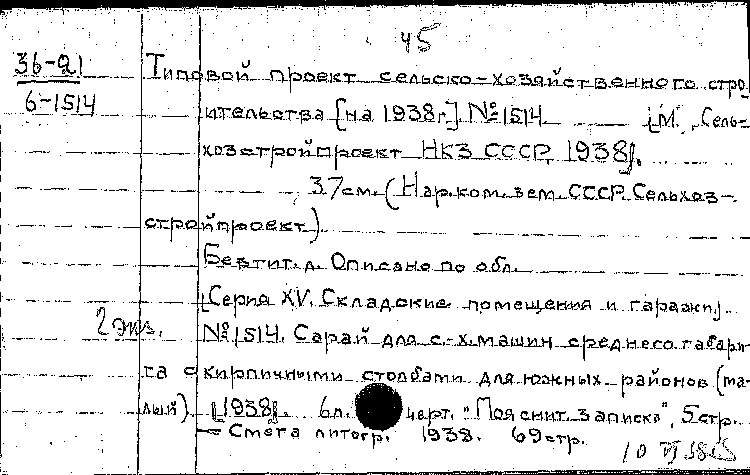 45
36-21
6-1514
Типовой проект сельско-хозяйственного стро
ительства [на 1938г.] №1514. [М., Сель-
хозстройпроект НКЗ СССР, 1938].
37см. (Нар.ком.зем.СССР. Сельхоз-
стройпроект).
Бевтит.л. Описано по обл.
[Серия XV. Складские помещения и гаражи.]
2 экз. №1514. Сарай для с.-х.машин среднего габари-
та с кирпичными столбами для южных районов (ма-
лый). [1938]. 6л. черт. "Пояснит.записка", 5стр.
— Смета литогр. 1938. 69стр.